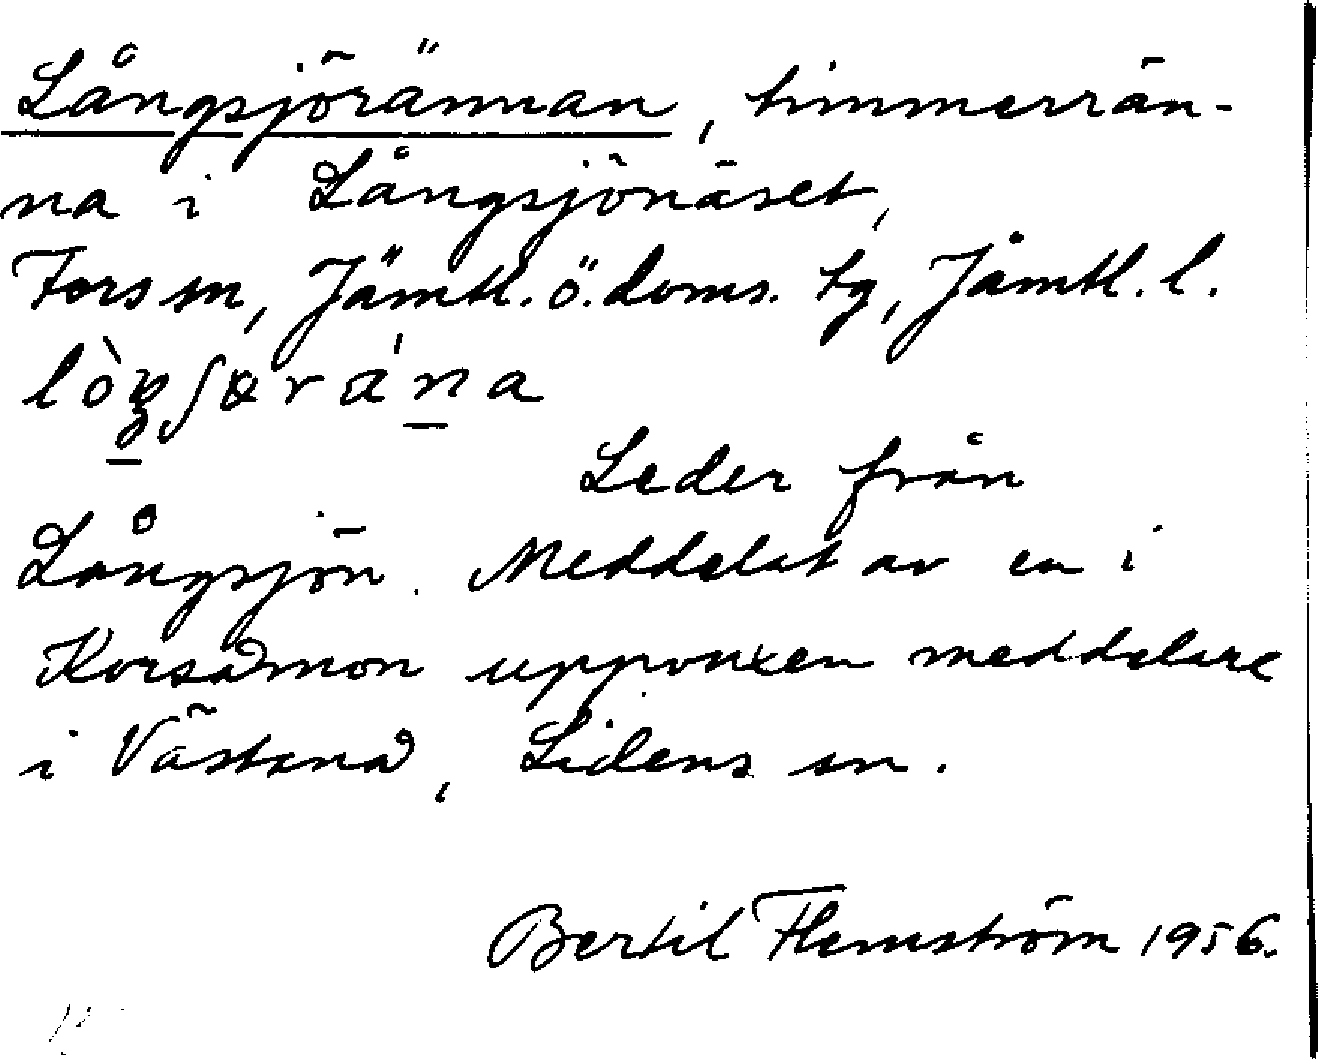 Långsjörännan, timmerrän-
na i Långsjönäset,
Fors sn, Jämtl. ö. doms. tg, Jämtl. l.
lòŋʃørána
Leder från
Långsjön. Meddelat av en i
Korsåmon uppvuxen meddelare
i Västanå, Lidens sn.
Bertil Flemström 1956.